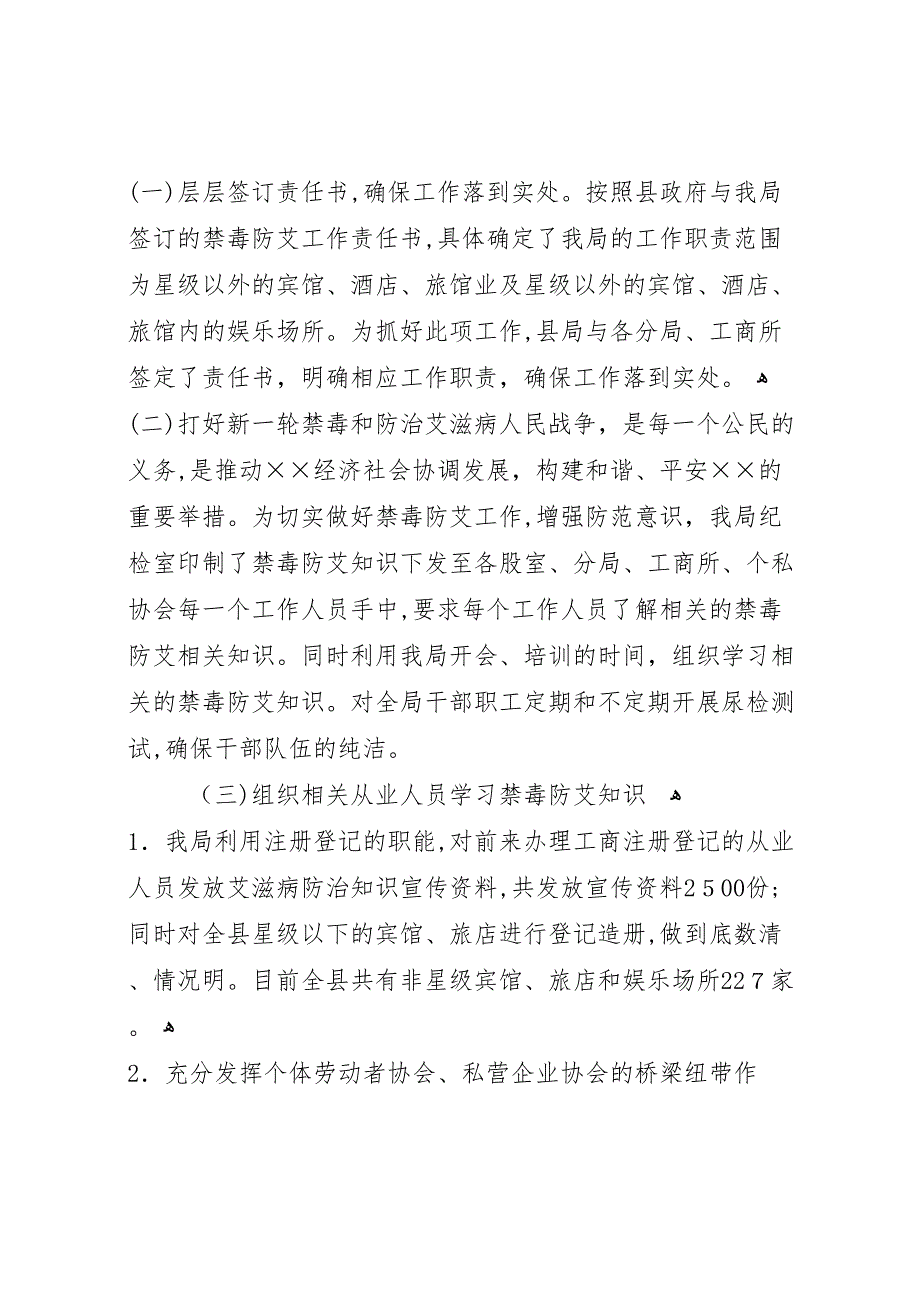 (一)层层签订责任书,确保工作落到实处。按照县政府与我局
签订的禁毒防艾工作责任书,具体确定了我局的工作职责范围
为星级以外的宾馆、酒店、旅馆业及星级以外的宾馆、酒店、
旅馆内的娱乐场所。为抓好此项工作,县局与各分局、工商所
签定了责任书，明确相应工作职责，确保工作落到实处。 ﻫ
(二)打好新一轮禁毒和防治艾滋病人民战争，是每一个公民的
义务,是推动××经济社会协调发展，构建和谐、平安××的
重要举措。为切实做好禁毒防艾工作,增强防范意识，我局纪
检室印制了禁毒防艾知识下发至各股室、分局、工商所、个私
协会每一个工作人员手中,要求每个工作人员了解相关的禁毒
防艾相关知识。同时利用我局开会、培训的时间，组织学习相
关的禁毒防艾知识。对全局干部职工定期和不定期开展尿检测
试,确保干部队伍的纯洁。
（三)组织相关从业人员学习禁毒防艾知识 ﻫ
1．我局利用注册登记的职能,对前来办理工商注册登记的从业
人员发放艾滋病防治知识宣传资料,共发放宣传资料2５00份;
同时对全县星级以下的宾馆、旅店进行登记造册,做到底数清
、情况明。目前全县共有非星级宾馆、旅店和娱乐场所22７家
。 ﻫ
2．充分发挥个体劳动者协会、私营企业协会的桥梁纽带作